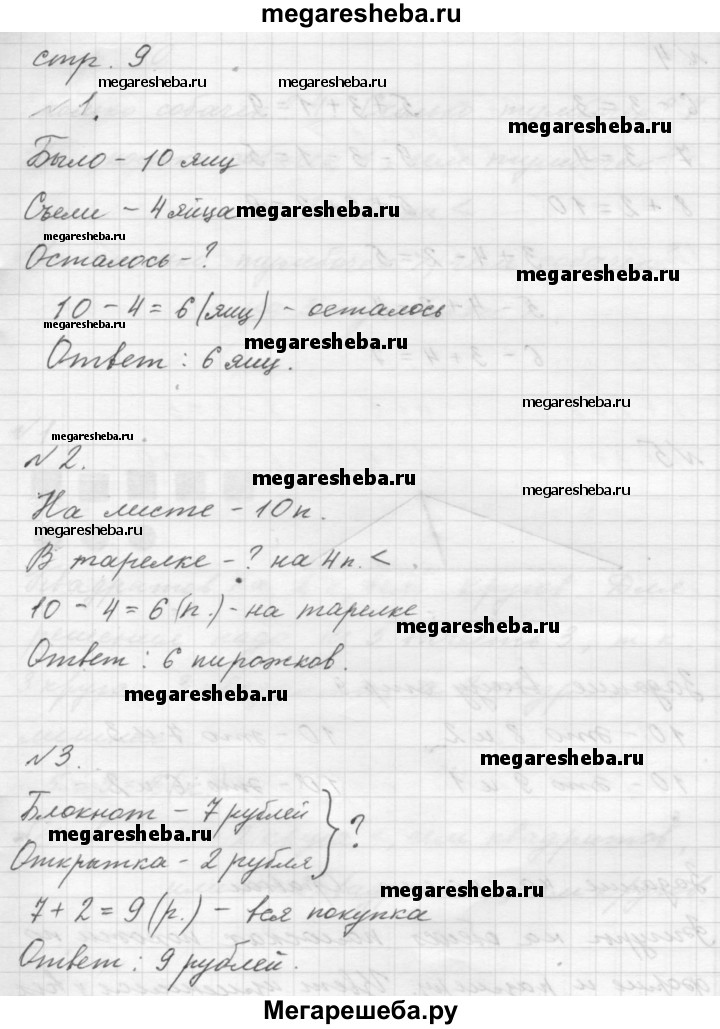 megaresheba.ru
стр. 9
megaresheba.ru megaresheba.ru
1.
megaresheba.ru
Было - 10 яиц
Съели - 4 яйца megaresheba.ru
megaresheba.ru
Осталось - ?
megaresheba.ru
10 - 4 = 6 (яиц) - осталось
megaresheba.ru
megaresheba.ru
Ответ : 6 яиц.
megaresheba.ru
megaresheba.ru
№2.
megaresheba.ru
megaresheba.ru
На листе - 10 п.
megaresheba.ru
В тарелке - ? на 4 п. <
10 - 4 = 6 (п.) - на тарелке
megaresheba.ru
Ответ : 6 пирожков.
megaresheba.ru
megaresheba.ru
№3.
megaresheba.ru
Блокнот - 7 рублей } ?
megaresheba.ru
Открытка - 2 рубля
megaresheba.ru
7 + 2 = 9 (р.) - вся покупка
Ответ : 9 рублей.
megaresheba.ru
Мегарешеба.ру